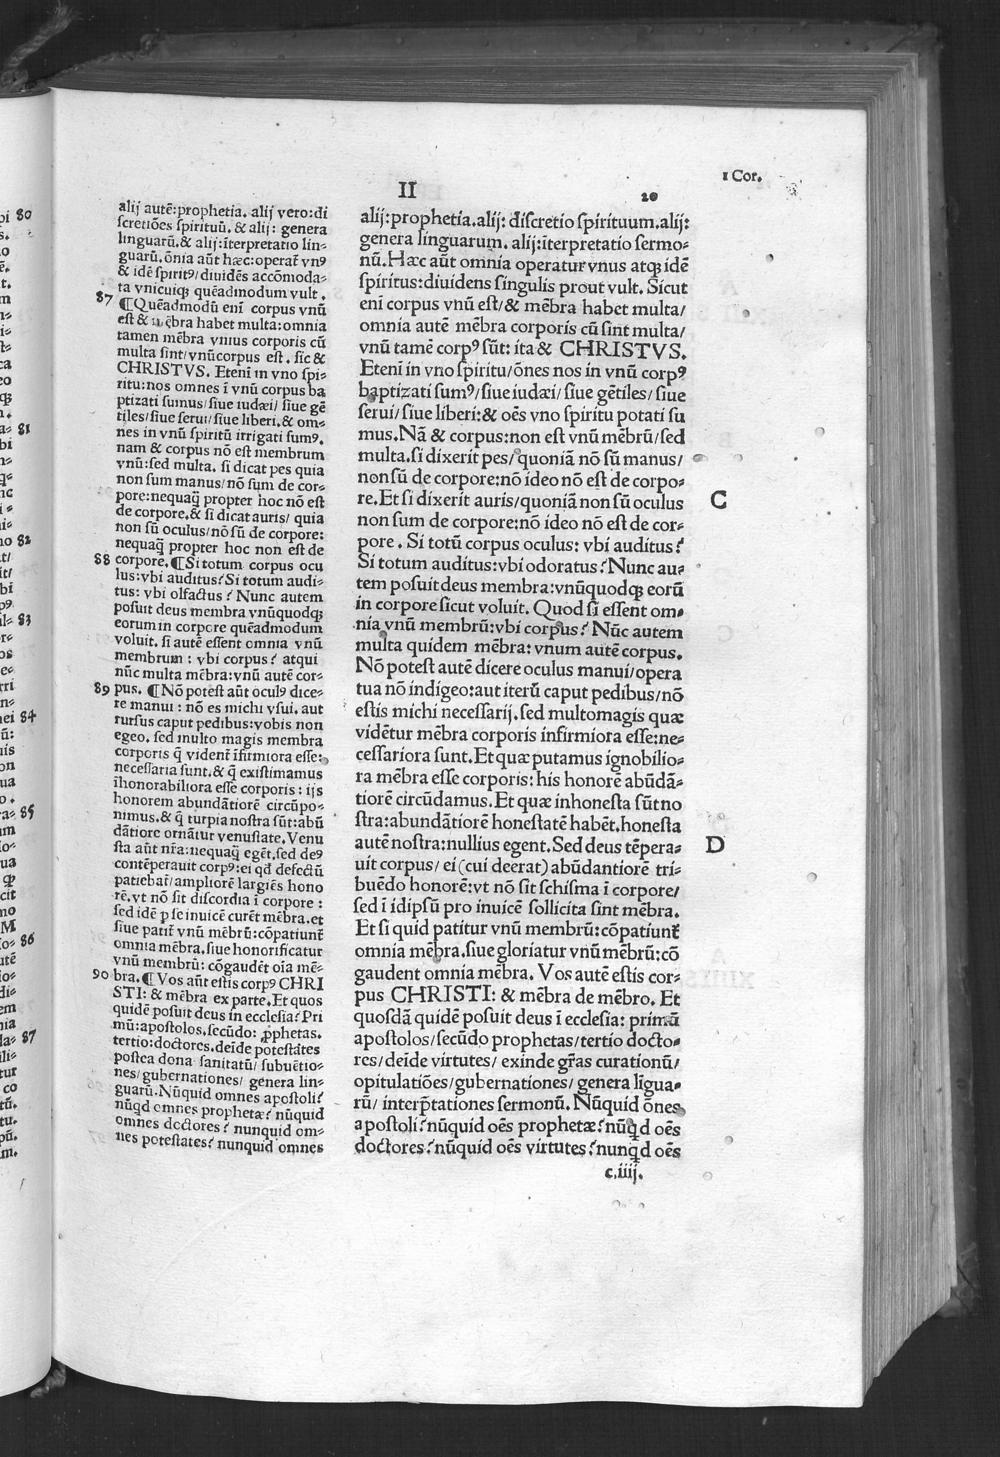 II
20
1 Cor.
alij autē:prophetia. alij vero:di
ſcretiões ſpirituū. & alij: genera
linguarū.& alij:īterpretatio lin⸗
guarū.ōnia aūt hæc:operat̃ vnꝰ
& idē ſpiritꝰ/diuidēs accōmoda⸗
ta vnicuiqꝫ quēadmodum vult.
87 ¶Quēadmodū eni corpus vnū
eſt & mēbra habet multa:omnia
tamen mēbra vnius corporis cū
multa ſint/vnū corpus eſt. ſic &
CHRISTVS. Eteni in vno ſpi⸗
ritu:nos omnes ī vnū corpus ba
ptizati ſumus/ſiue iudæi/ ſiue gē
tiles/ſiue ſerui/ſiue liberi.& om⸗
nes in vnū ſpiritū irrigati ſumꝰ.
nam & corpus nō eſt membrum
vnū:ſed multa. ſi dicat pes quia
non ſum manus/nō ſum de cor⸗
pore:nequaq̄ propter hoc nō eſt
de corpore.& ſi dicat auris/ quia
non ſū oculus/nō ſū de corpore:
nequaq̄ propter hoc non eſt de
88 corpore.¶Si totum corpus ocu
lus:vbi auditus?Si totum audi⸗
tus: vbi olfactus? Nunc autem
poſuit deus membra vnūquodqꝫ
eorum in corpore quēadmodum
voluit. ſi autē eſſent omnia vnū
membrum: vbi corpus? atqui
nūc multa mēbra:vnū autē cor⸗
89 pus. ¶Nō poteſt aūt oculꝰ dice⸗
re manui: nō es michi vſui. aut
rurſus caput pedibus:vobis non
egeo. ſed multo magis membra
corporis q̄ vident̃ īfirmiora eſſe:
neceſſaria ſunt.& q̄ exiſtimamus
īhonorabiliora eſſe corporis: ijs
honorem abundātiorē circūpo⸗
nimus.& q̄ turpia noſtra ſūt:abū
dātiore ornātur venuſtate.Venu
ſta aūt nr̃a:nequaq̄ egēt.ſed deꝰ
contēperauit corpꝰ:ei qd̄ defectū
patiebat̃/ampliorē largiēs hono
rē.vt nō ſit diſcordia ī corpore:
ſed idē p ſe inuicē curēt mēbra.et
ſiue patit̃ vnū mēbrū:cōpatiunt̃
omnia mēbra.ſiue honorificatur
vnū membrū: cōgaudēt oīa mē⸗
90 bra.¶Vos aūt eſtis corpꝰ CHRI
STI: & mēbra ex parte.Et quos
quidē poſuit deus in eccleſia?Pri
mū:apoſtolos.ſecūdo: ꝓphetas.
tertio:doctores.deīde poteſtātes
poſtea dona ſanitatū/ ſubuētio⸗
nes/gubernationes/ genera lin⸗
guarū.Nūquid omnes apoſtoli?
nūqd omnes prophetæ? nūquid
omnes doctores? nunquid om⸗
nes poteſtates? nunquid omnes
alij:prophetia.alij: diſcretio ſpirituum.alij:
genera linguarum. alij:īterpretatio ſermo⸗
nū.Hæc aūt omnia operatur vnus atqꝫ idē
ſpiritus:diuidens ſingulis prout vult. Sicut
eni corpus vnū eſt/& mēbra habet multa/
omnia autē mēbra corporis cū ſint multa/
vnū tamē corpꝰ ſūt: ita & CHRISTVS.
Eteni in vno ſpiritu/ōnes nos in vnū corpꝰ
baptizati ſumꝰ/ſiue iudæi/ ſiue gētiles/ ſiue
ſerui/ ſiue liberi:& oēs vno ſpiritu potati ſu
mus.Nā & corpus:non eſt vnū mēbrū/ſed
multa.ſi dixerit pes/quoniā nō ſū manus/
non ſū de corpore:nō ideo nō eſt de corpo⸗
re.Et ſi dixerit auris/quoniā non ſū oculus
C
non ſum de corpore:nō ideo nō eſt de cor⸗
pore. Si totū corpus oculus: vbi auditus?
Si totum auditus:vbi odoratus?Nunc au⸗
tem poſuit deus membra:vnūquodqꝫ eorū
in corpore ſicut voluit. Quod ſi eſſent om⸗
nia vnū membrū:vbi corpus? Nūc autem
multa quidem mēbra: vnum autē corpus.
Nō poteſt autē dicere oculus manui/opera
tua nō indigeo:aut iterū caput pedibus/nō
eſtis michi neceſſarij.ſed multomagis quæ
vidētur mēbra corporis infirmiora eſſe:ne⸗
ceſſariora ſunt.Et quæ putamus ignobilio⸗
ra mēbra eſſe corporis: his honorē abūdā⸗
tiorē circūdamus.Et quæ inhoneſta ſūt no
ſtra:abundātiorē honeſtatē habēt.honeſta
autē noſtra:nullius egent.Sed deus tēpera⸗
D
uit corpus/ ei (cui deerat) abūdantiorē tri⸗
buēdo honorē:vt nō ſit ſchiſma ī corpore/
ſed ī idipſū pro inuicē ſollicita ſint mēbra.
Et ſi quid patitur vnū membrū:cōpatiunt̃
omnia mēbra.ſiue gloriatur vnū mēbrū:cō
gaudent omnia mēbra. Vos autē eſtis cor⸗
pus CHRISTI: & mēbra de mēbro. Et
quoſdā quidē poſuit deus ī eccleſia: primū
apoſtolos/ſecūdo prophetas/tertio docto⸗
res/deīde virtutes/ exinde gr̃as curationū/
opitulatiões/gubernationes/ genera līgua⸗
rū/ interp̄tationes ſermonū. Nūquid ōnes
apoſtoli?nūquid oēs prophetæ?nūq̄d oēs
doctores?nūquid oēs virtutes?nunq̄d oēs
c.iiij.
80
81
82
83
84
85
86
87